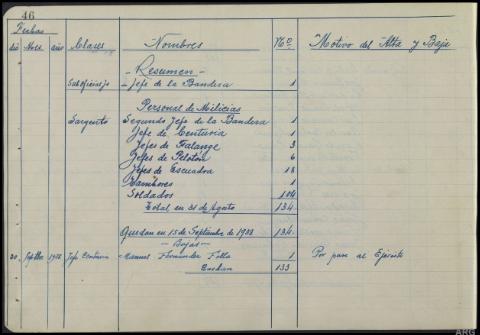 46
Fechas
dia Mes año Clases Nombres Nº Motivo del Alta y Baja
- Resumen -
Suboficiales - Jefe de la Bandera 1
Personal de Milicias
Sargento Segundo Jefe de la Bandera 1
Jefe de Centuria 1
Jefes de Falange 3
Jefes de Pelotón 6
Jefes de Escuadra 18
Tambores 1
Soldados 104
Total en 31 de Agosto 134
Quedan en 15 de Septiembre de 1938 134
- Bajas -
20 Septbre 1938 Jefe Centuria - Manuel Fernández 1 Por pase al Ejército
Quedan 133
ARG